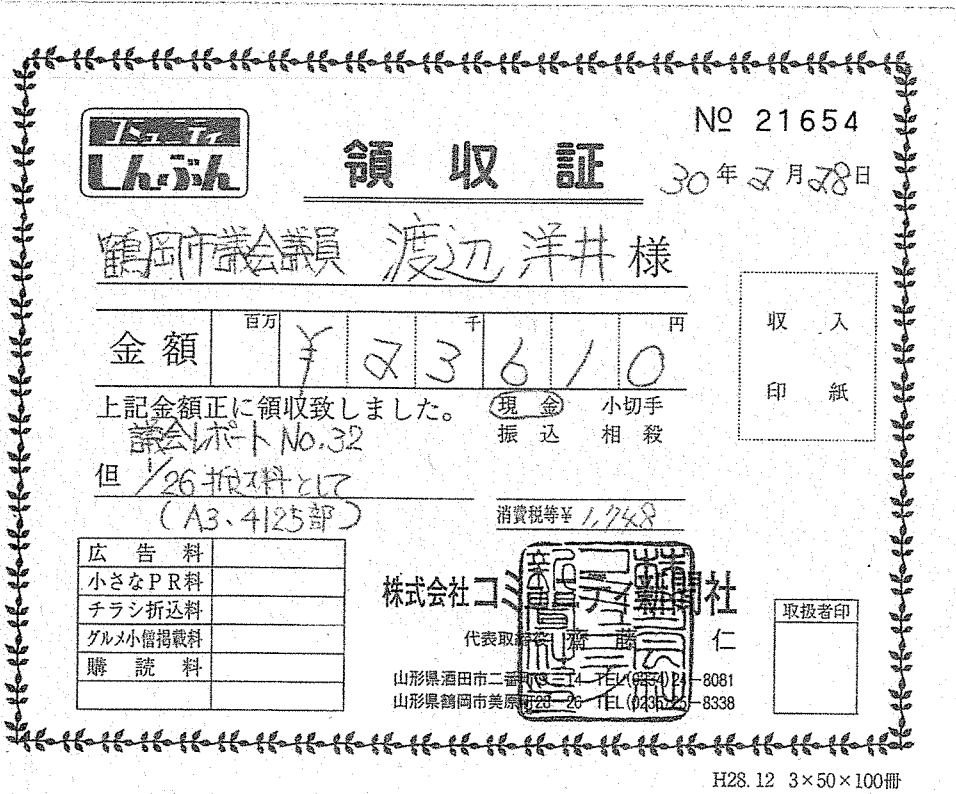 コミュニティ
しんぶん
領収証
№ 21654
30年2月28日
鶴岡市議会議員 渡辺 洋井 様
金額 百万 ¥ 2 3 千 6 1 0 円
上記金額正に領収致しました。
現金 小切手
振込 相殺
議会レポート No.32
但 1/26 折込料として
(A3、4125部)
消費税等¥ 1,748
収入
印紙
広告料
小さなPR料
チラシ折込料
グルメ小僧掲載料
購読料
株式会社コミュニティ新聞社
代表取締役 齋藤 仁
山形県酒田市二番町 14 TEL(0234)24-8081
山形県鶴岡市美原町28-26 TEL(0235)25-8338
取扱者印
H28.12 3×50×100冊